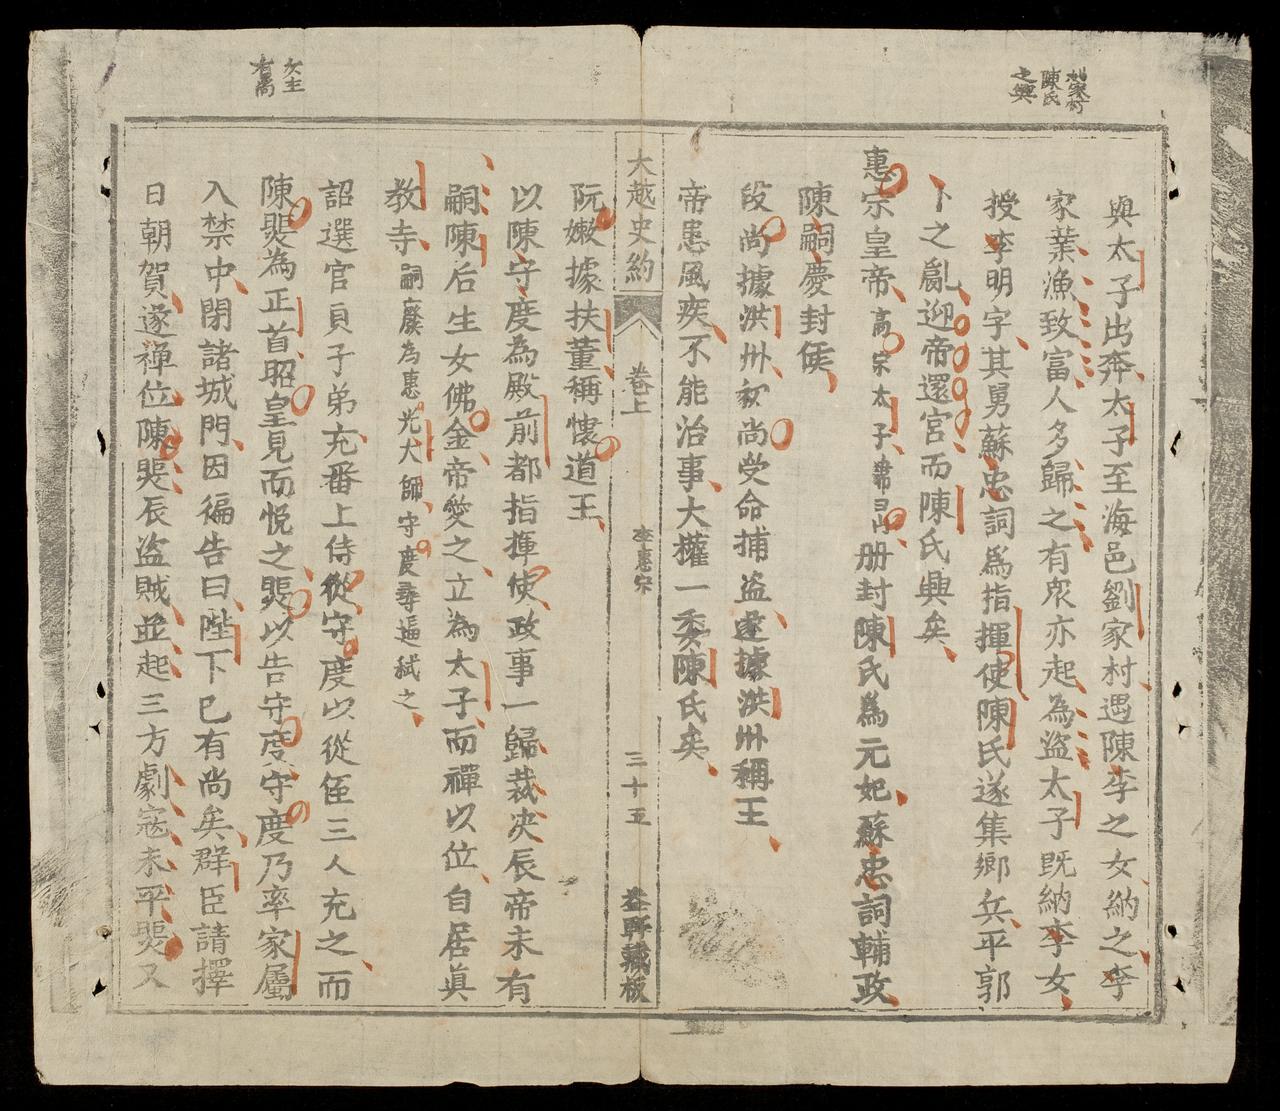 劉家村
陳氏
之興
與太子出奔太子至海邑劉家村遇陳李之女納之李
家業漁致富人多歸之有眾亦起為盜太子既納李女
授李明字其舅蘇忠詞為指揮使陳氏遂集鄉兵平郭
卜之亂迎帝還宮而陳氏興矣
惠宗皇帝高宗太子 册封陳氏為元妃蘇忠詞輔政
陳嗣慶封侯
段尚據洪州初尚受命捕盜遂據洪州稱王
帝患風疾不能治事大權一委陳氏矣
大越史約
卷上
李惠宗
三十五
藏板
阮嫩據扶董稱懷道王
以陳守度為殿前都指揮使政事一歸裁决辰帝未有
嗣陳后生女佛金帝愛之立為太子而禪以位自居真
教寺嗣廢為惠光大師守度尋逼弑之
詔選官員子弟充番上侍從守度以從侄三人充之而
陳煚為正首昭皇見而悅之煚以告守度守度乃率家屬
入禁中閉諸城門因徧告曰陛下已有尚矣群臣請擇
日朝賀遂禪位陳煚辰盜賊並起三方劇寇未平煚又
女主
有尚